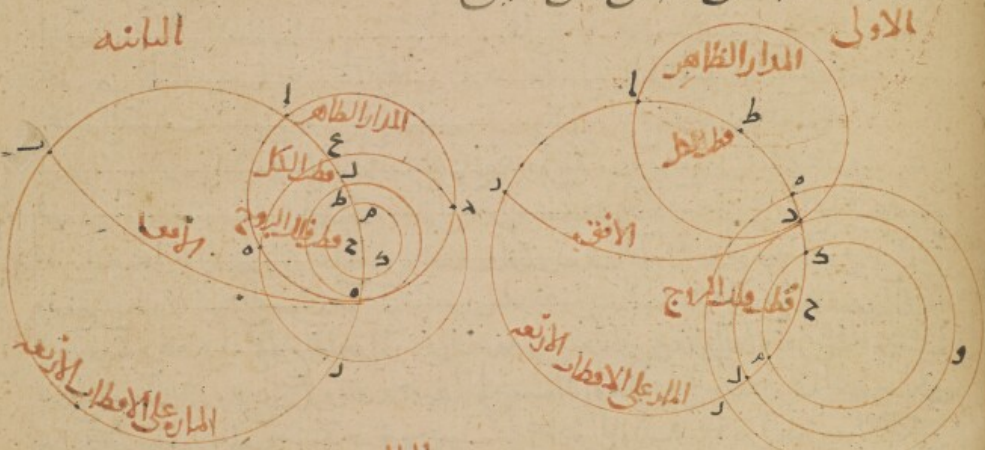 الاولى
المدار الظاهر
ا
ط
قطب الكل
ه
د
ر
الافق
ك
قطب فلك البروج
ح
و
م
ل
ر
المار على الاقطاب الاربعة
الثانية
ا
المدار الظاهر
ع
قطب الكل
ل
ط
م
د
ب
قطب فلك البروج
ح
ك
ه
الافق
و
ر
المار على الاقطاب الاربعة